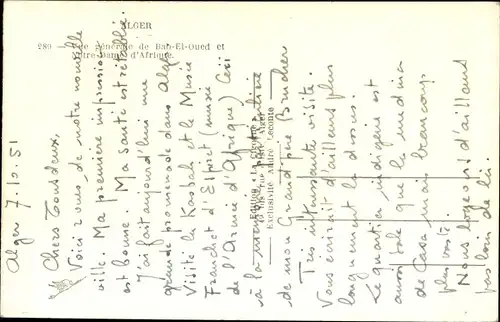 ALGER
289 — Vue générale de Bab-El-Oued et
Notre-Dame d'Afrique.
Exclusivité André Leconte
Alger 7.10.51
Chers Tous deux,
Voici vues de notre nouvelle
ville. Ma première impression
est bonne. Ma santé est rétablie.
J'ai fait aujourd'hui une
grande promenade dans Alger
Visité la Kasbah et le Musée
Franchet d'Esperet (musée
de l'Armée d'Afrique) Ceci
à la
de mon Grand père
Très intéressante visite.
Vous écrirait d'ailleurs plus
longuement là dessus.
Le quartier indigène est
aussi sale que la medina
de Casa mais beaucoup
plus vaste.
Nous logeons d'ailleurs
pas loin de là.